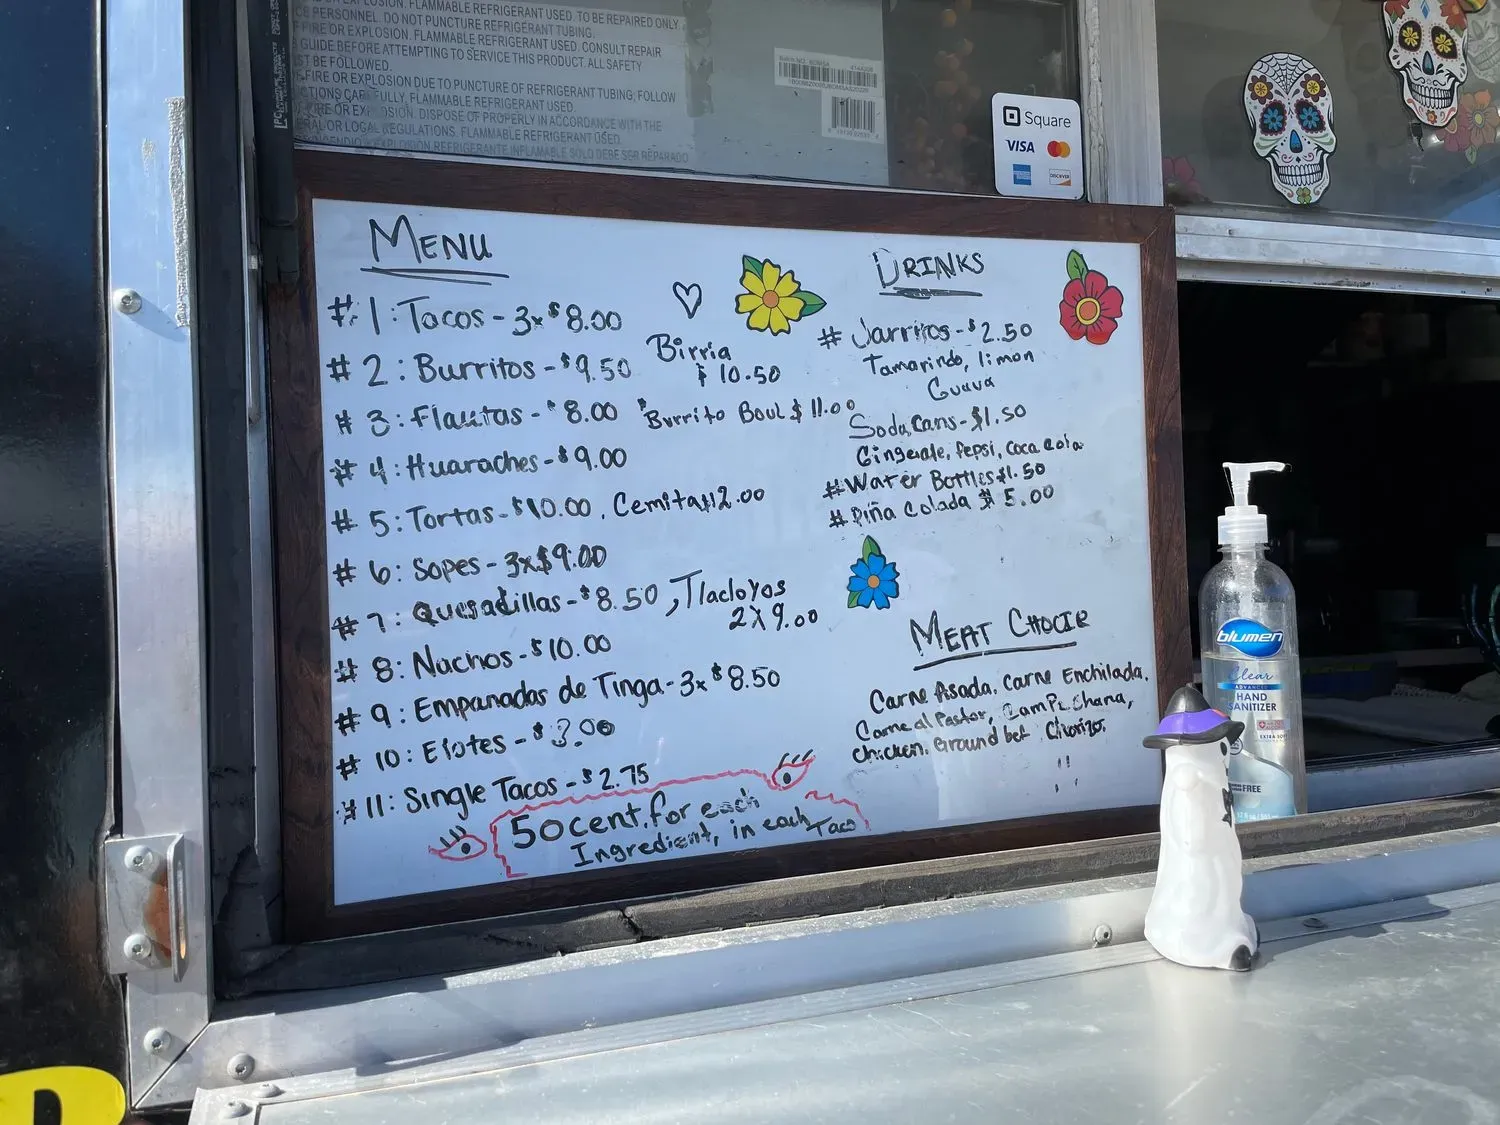 EXPLOSION. FLAMMABLE REFRIGERANT USED. TO BE REPAIRED ONLY
PERSONNEL. DO NOT PUNCTURE REFRIGERANT TUBING.
FIRE OR EXPLOSION. FLAMMABLE REFRIGERANT USED. CONSULT REPAIR
GUIDE BEFORE ATTEMPTING TO SERVICE THIS PRODUCT. ALL SAFETY
ST BE FOLLOWED.
FIRE OR EXPLOSION DUE TO PUNCTURE OF REFRIGERANT TUBING; FOLLOW
CTIONS CAREFULLY. FLAMMABLE REFRIGERANT USED.
FIRE OR EXPLOSION. DISPOSE OF PROPERLY IN ACCORDANCE WITH THE
RAL OR LOCAL REGULATIONS. FLAMMABLE REFRIGERANT USED.
EXPLOSION REFRIGERANTE INFLAMABLE SOLO DEBE SER REPARADO
Square
VISA
DISCOVER
MENU
# 1: Tacos - 3x $8.00
# 2: Burritos - $9.50
Birria
$ 10.50
# 3: Flautas - $8.00
Burrito Boul $ 11.00
# 4: Huaraches - $9.00
# 5: Tortas - $10.00, Cemita $12.00
# 6: Sopes - 3x $9.00
# 7: Quesadillas - $8.50, Tlacloyos
2x9.00
# 8: Nachos - $10.00
# 9: Empanadas de Tinga - 3x $8.50
# 10: Elotes - $3.00
# 11: Single Tacos - $2.75
50 cent. for each
Ingredient, in each Taco
DRINKS
# Jarritos - $2.50
Tamarindo, limon
Guava
Soda Cans - $1.50
Gingerale, Pepsi, Coca Cola
# Water Bottles $1.50
# Piña Colada $ 5.00
MEAT CHOCIE
Carne Asada, Carne Enchilada,
Carne al Pastor, Campechana,
chicken, Ground bef Chorizo.
blumen
Clear
ADVANCED
HAND
SANITIZER
FREE